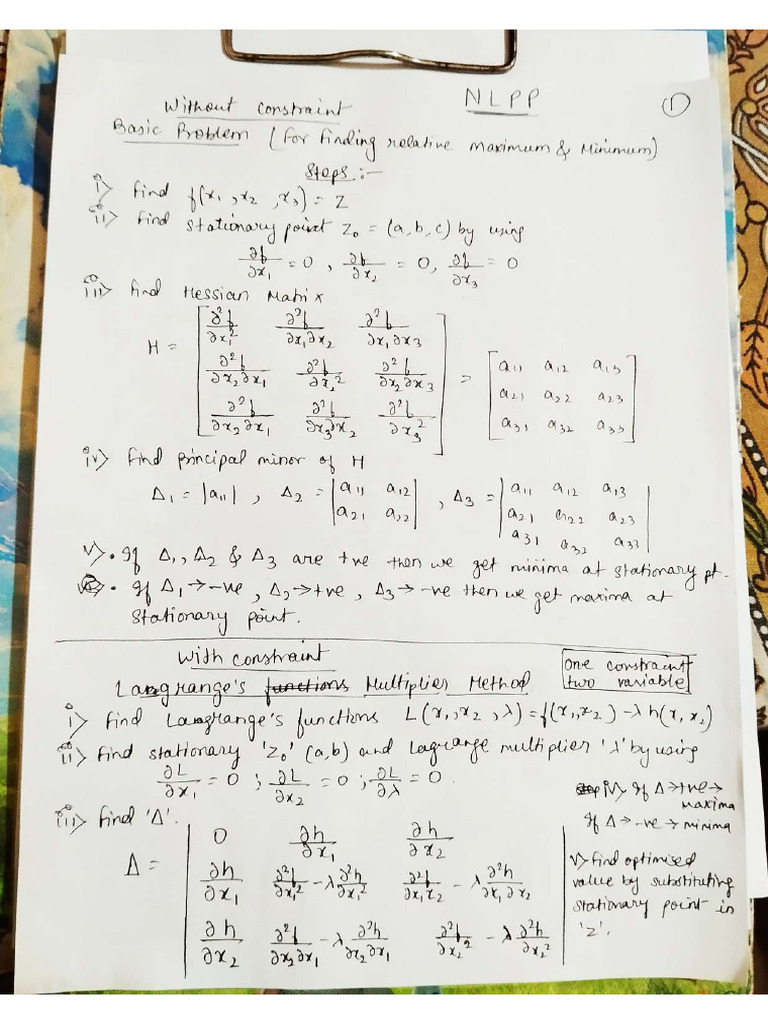 NLPP
①
Without constraint
Basic Problem (For finding relative maximum & Minimum)
Steps :-
i) Find f(x₁, x₂, x₃) = Z
ii) Find stationary point Z₀ = (a, b, c) by using
∂f/∂x₁ = 0, ∂f/∂x₂ = 0, ∂f/∂x₃ = 0
iii) Find Hessian Matrix
H = [ ∂²f/∂x₁² ∂²f/∂x₁∂x₂ ∂²f/∂x₁∂x₃
∂²f/∂x₂∂x₁ ∂²f/∂x₂² ∂²f/∂x₂∂x₃
∂²f/∂x₂∂x₁ ∂²f/∂x₃∂x₂ ∂²f/∂x₃² ] = [ a₁₁ a₁₂ a₁₃
a₂₁ a₂₂ a₂₃
a₃₁ a₃₂ a₃₃ ]
iv) Find principal minor of H
Δ₁ = |a₁₁|, Δ₂ = | a₁₁ a₁₂
a₂₁ a₂₂ |, Δ₃ = | a₁₁ a₁₂ a₁₃
a₂₁ a₂₂ a₂₃
a₃₁ a₃₂ a₃₃ |
v) • If Δ₁, Δ₂ & Δ₃ are +ve then we get minima at stationary pt.
• If Δ₁ → -ve, Δ₂ → +ve, Δ₃ → -ve then we get maxima at
stationary point.
With constraint
One constraint
two variable
Lagrange's functions Multiplier Method
i) Find Lagrange's functions L(x₁, x₂, λ) = f(x₁, x₂) - λ h(x₁, x₂)
ii) Find stationary 'Z₀' (a, b) and Lagrange multiplier 'λ' by using
∂L/∂x₁ = 0 ; ∂L/∂x₂ = 0 ; ∂L/∂λ = 0.
iii) Find 'Δ'.
Δ = | 0 ∂h/∂x₁ ∂h/∂x₂
∂h/∂x₁ ∂²f/∂x₁² - λ ∂²h/∂x₁² ∂²f/∂x₁x₂ - λ ∂²h/∂x₁∂x₂
∂h/∂x₂ ∂²f/∂x₂∂x₁ - λ ∂²h/∂x₂∂x₁ ∂²f/∂x₂² - λ ∂²h/∂x₂² |
step iv) If Δ → +ve →
maxima
If Δ → -ve → minima
v) Find optimised
value by substituting
stationary point in
'Z'.